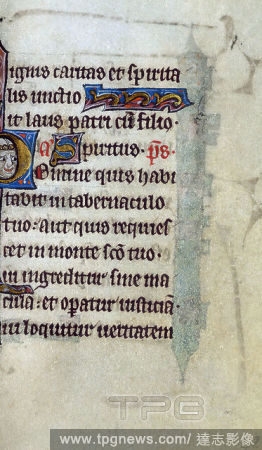 ignis caritas et spirita
lis unctio
it laus patri cū filio.
a Spiritus. ps.
Domine quis habi
tabit in tabernaculo
tuo: aut quis requies
cet in monte scō tuo.
in ingreditur sine ma
cula: et opatur iusticiā.
ui loquitur ueritatem
TPG
www.tpgnews.com/ 達志影像